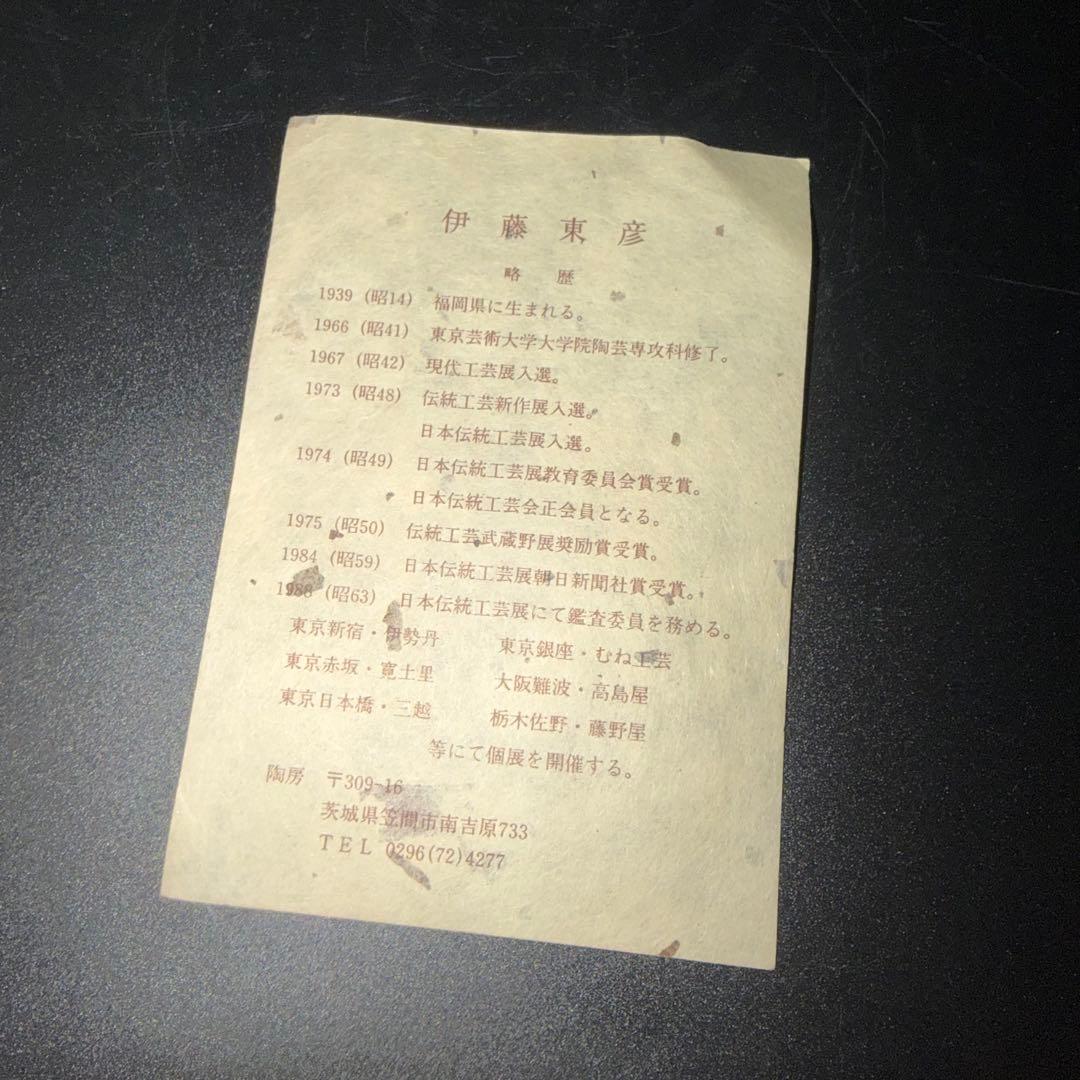 伊藤東彦
略歴
1939 (昭14) 福岡県に生まれる。
1966 (昭41) 東京芸術大学大学院陶芸専攻科修了。
1967 (昭42) 現代工芸展入選。
1973 (昭48) 伝統工芸新作展入選。
日本伝統工芸展入選。
1974 (昭49) 日本伝統工芸展教育委員会賞受賞。
日本伝統工芸会正会員となる。
1975 (昭50) 伝統工芸武蔵野展奨励賞受賞。
1984 (昭59) 日本伝統工芸展朝日新聞社賞受賞。
1988 (昭63) 日本伝統工芸展にて鑑査委員を務める。
東京新宿・伊勢丹 東京銀座・むね工芸
東京赤坂・寛土里 大阪難波・高島屋
東京日本橋・三越 栃木佐野・藤野屋
等にて個展を開催する。
陶房 〒309-16
茨城県笠間市南吉原733
TEL 0296(72)4277